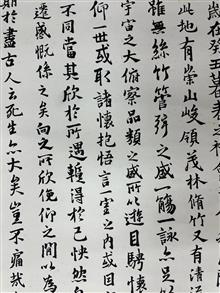 在癸丑暮春
此地有崇山峻領茂林脩竹又有清
雖無絲竹管弦之盛一觴一詠亦足以
宇宙之大俯察品類之盛所以遊目騁懷
仰一世或取諸懷抱悟言一室之內或因
不同當其欣於所遇暫得於己快然自
遷感慨係之矣向之所欣俛仰之間以為
期於盡古人云死生亦大矣豈不痛哉